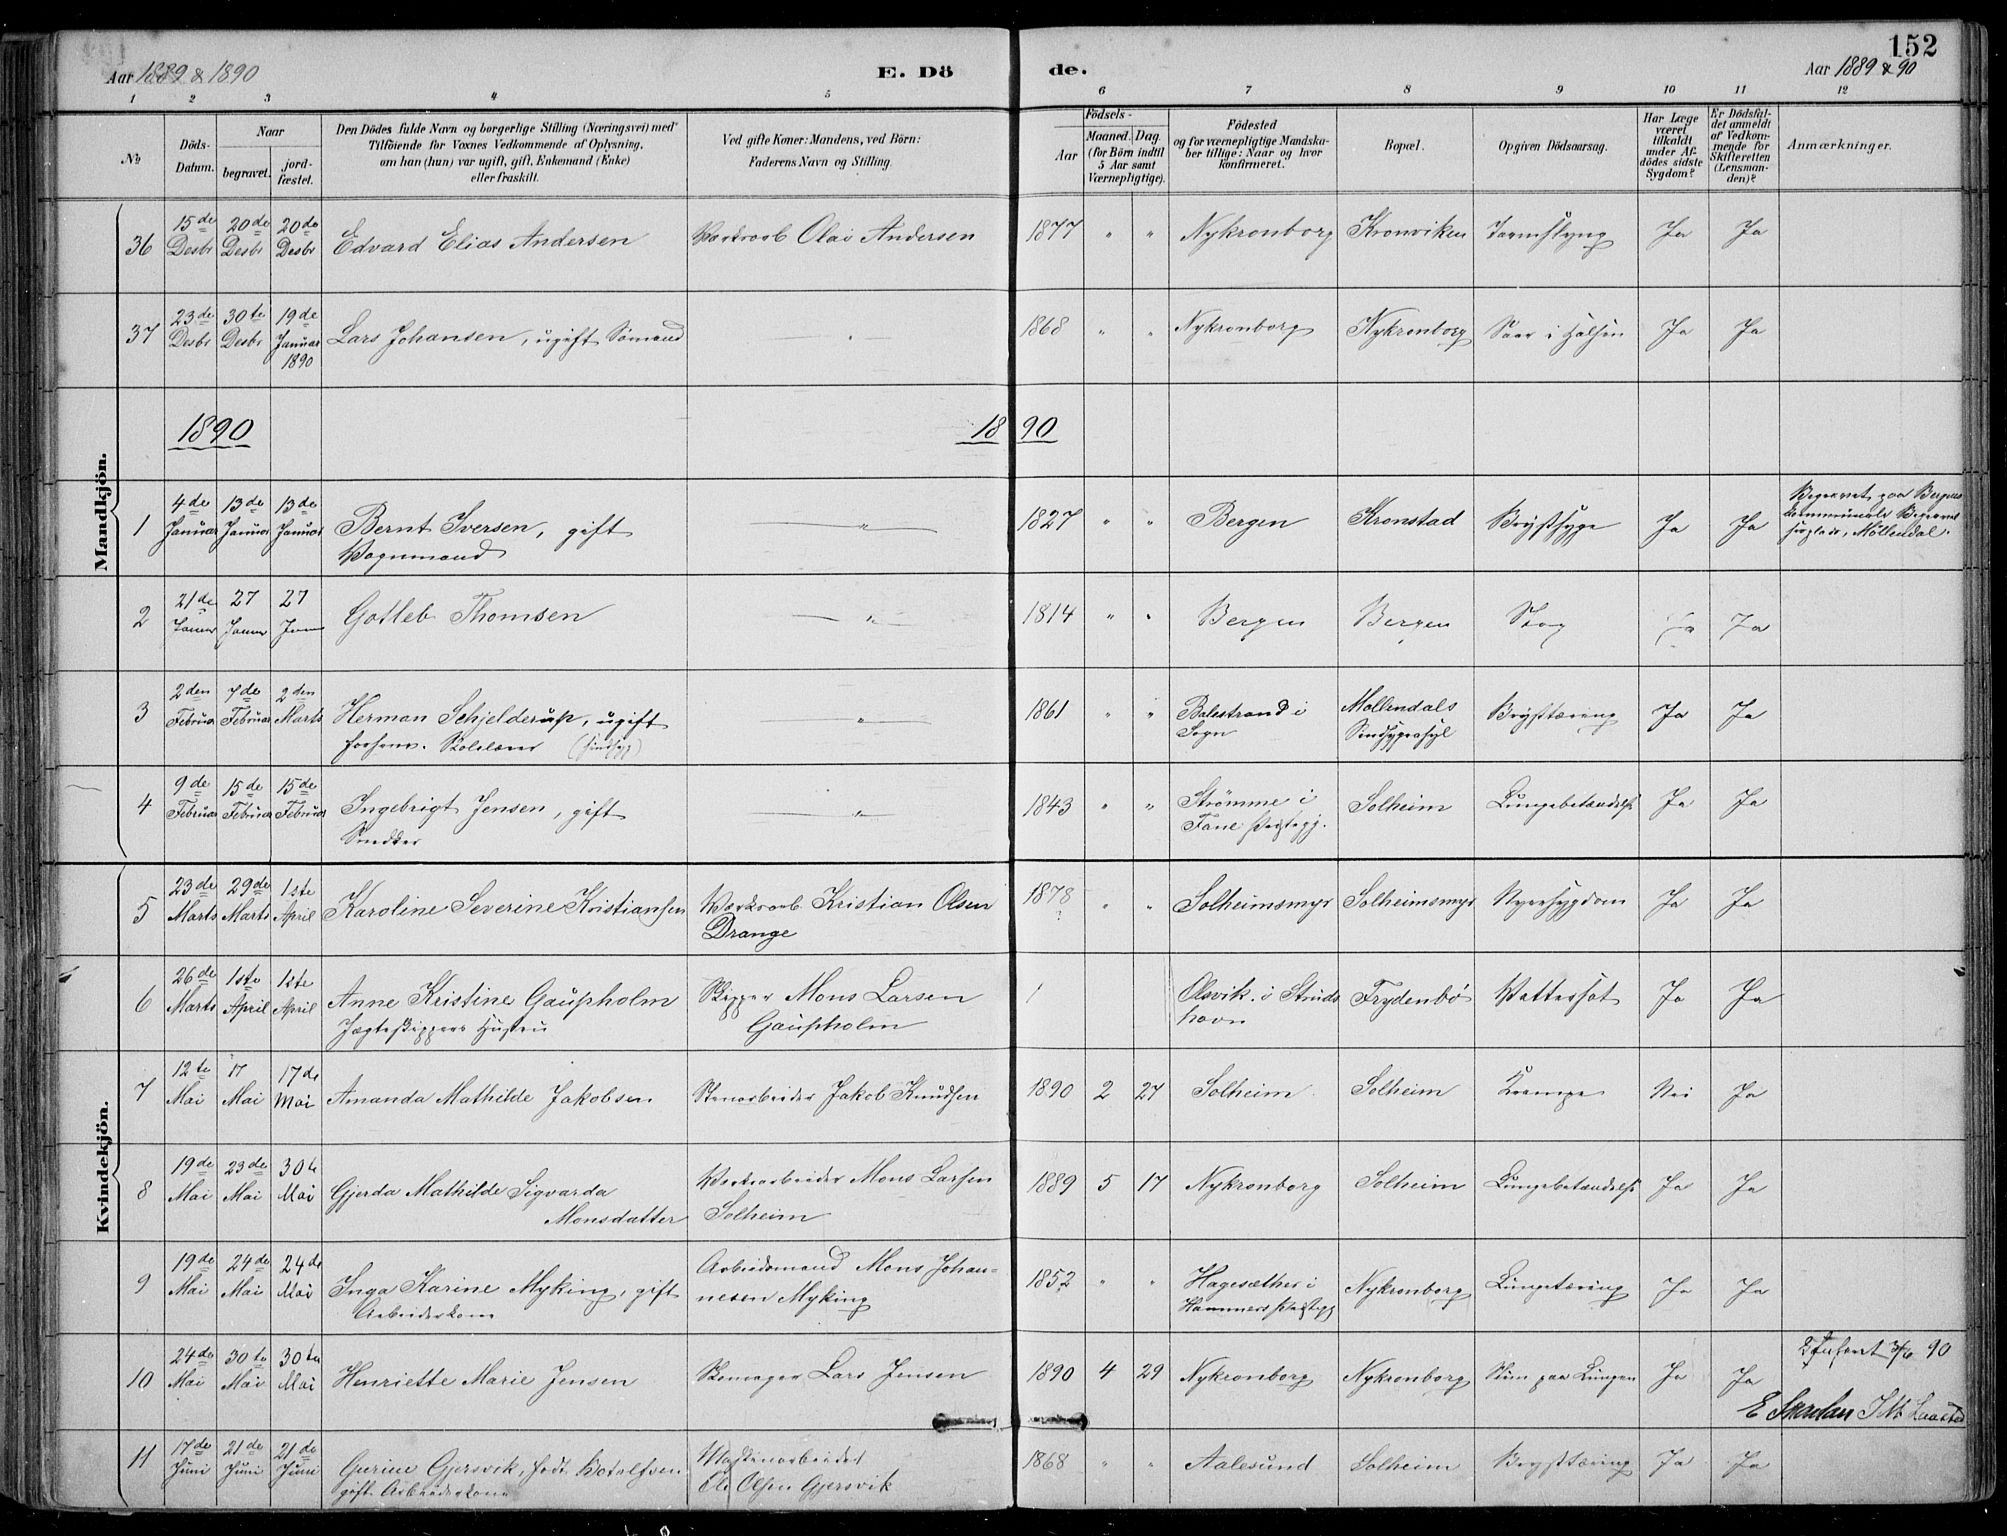 152
Aar 1889 & 1890
E. Dö
de.
Aar 1889 & 90
1 2 3 4 5 6 7 8 9 10 11 12
№
Döds-Datum.
Naar
begravet.
jord-fæstet.
Den Dödes fulde Navn og borgerlige Stilling (Næringsvei) med
Tilföiende for Voxnes Vedkommende af Oplysning,
om han (hun) var ugift, gift, Enkemand (Enke)
eller fraskilt.
Ved gifte Koner: Mandens, ved Börn:
Faderens Navn og Stilling.
Födsels-
Aar
Maaned. Dag.
(for Börn indtil
5 Aar samt
Værnepligtige).
Födested
og for værnepligtige Mandska-
ber tillige: Naar og hvor
konfirmeret.
Bopæl.
Opgiven Dödsaarsag.
Har Læge
været
tilkaldt
under Af-
dödes sidste
Sygdom?
Er Dödsfal-
det anmeldt
af Vedkom-
mende for
Skifteretten
(Lensman-
den)?
Anmærkninger.
Mandkjön.
36 15de Desbr 20de Desbr 20de Desbr Edvard Elias Andersen Værksarb Olai Andersen 1877 " " Nykronborg Kronviken Tarmslyng Ja Ja
37 23de Desbr 30te Desbr 19de Januar 1890 Lars Johansen, ugift Sömand " 1868 " " Nykronborg Nykronborg Saar i Halsen Ja Ja
1890 1890
1 4de Januar 13de Januar 13de Januar Bernt Iversen, gift " 1827 " " Bergen Kronstad Brystsyge Ja Ja Begravet paa Bergens
Vognmand kommunale Begravel
Möllendal.
2 21de Januar 27 Januar 27 Jan Gotleb Thomsen " 1814 " " Bergen Bergen Ja Ja
3 2den Februar 7de Februar 2den Marts Herman Schjelderup, ugift " 1861 " " Balestrand i Möllendals Brysttæring Ja Ja
forhenv. Skolelærer (sindssyg) Sogn Sindsygeasyl
4 9de Februar 15de Februar 15de Februar Ingebrigt Jensen, gift " 1843 " " Strömme i Solheim Lungebetændelse Ja Ja
Snedker Fane Præstegj.
Kvindekjön.
5 23de Marts 29de Marts 1ste April Karoline Severine Kristiansen Værksarb Kristian Olsen 1878 ? " " Solheimsmyr Solheimsmyr Nyresygdom Ja Ja
Drange
6 26de Marts 1ste April 1ste April Anne Kristine Gaupholm Skipper Mons Larsen 1 Olsvik i Struds Frydenbö Vattersot Ja Ja
Jægteskippers Hustru Gaupholm havn
7 12te Mai 17 Mai 17de Mai Amanda Mathilde Jakobsen Stenarbeider Jakob Knudsen 1890 2 27 Solheim Solheim Krampe Nei Ja
8 19de Mai 23de Mai 30te Mai Gjerda Mathilde Sigvarda Værksarbeider Mons Larsen 1889 5 17 Nykronborg Solheim Lungebetændelse Ja Ja
Monsdatter Solheim
9 19de Mai 24de Mai 24de Mai Inga Karine Myking, gift Arbeidsmand Mons Johan- 1852 ? " " Hagesæther i Nykronborg Lungetæring Ja Ja
Arbeiderkone nesen Myking Hammers Præstegj
10 24de Mai 30te Mai 30te Mai Henriette Marie Jensen Skomager Lars Jensen 1890 4 29 Nykronborg Nykronborg Slim paa Lungen Ja Ja 3/6 90
E
11 17de Juni 21de Juni 21de Juni Gurine Gjersvik, född Botolfsen 1868 " " Aalesund Solheim Brysttæring Ja Ja
gift Arbeiderkone Ole Olsen Gjersvik